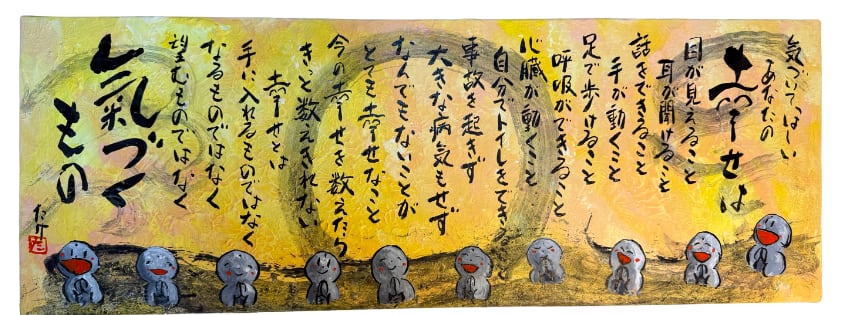 気づいてほしい
あなたの
幸せは
目が見えること
耳が聞けること
話をできること
手が動くこと
足で歩けること
呼吸ができること
心臓が動くこと
自分でトイレをでき
事故を起きず
大きな病気もせず
なんでもないことが
とても幸せなこと
今の幸せを数えたら
きっと数えきれない
幸せとは
手に入れるものではなく
なるものではなく
望むものではなく
氣づく
もの
たけ